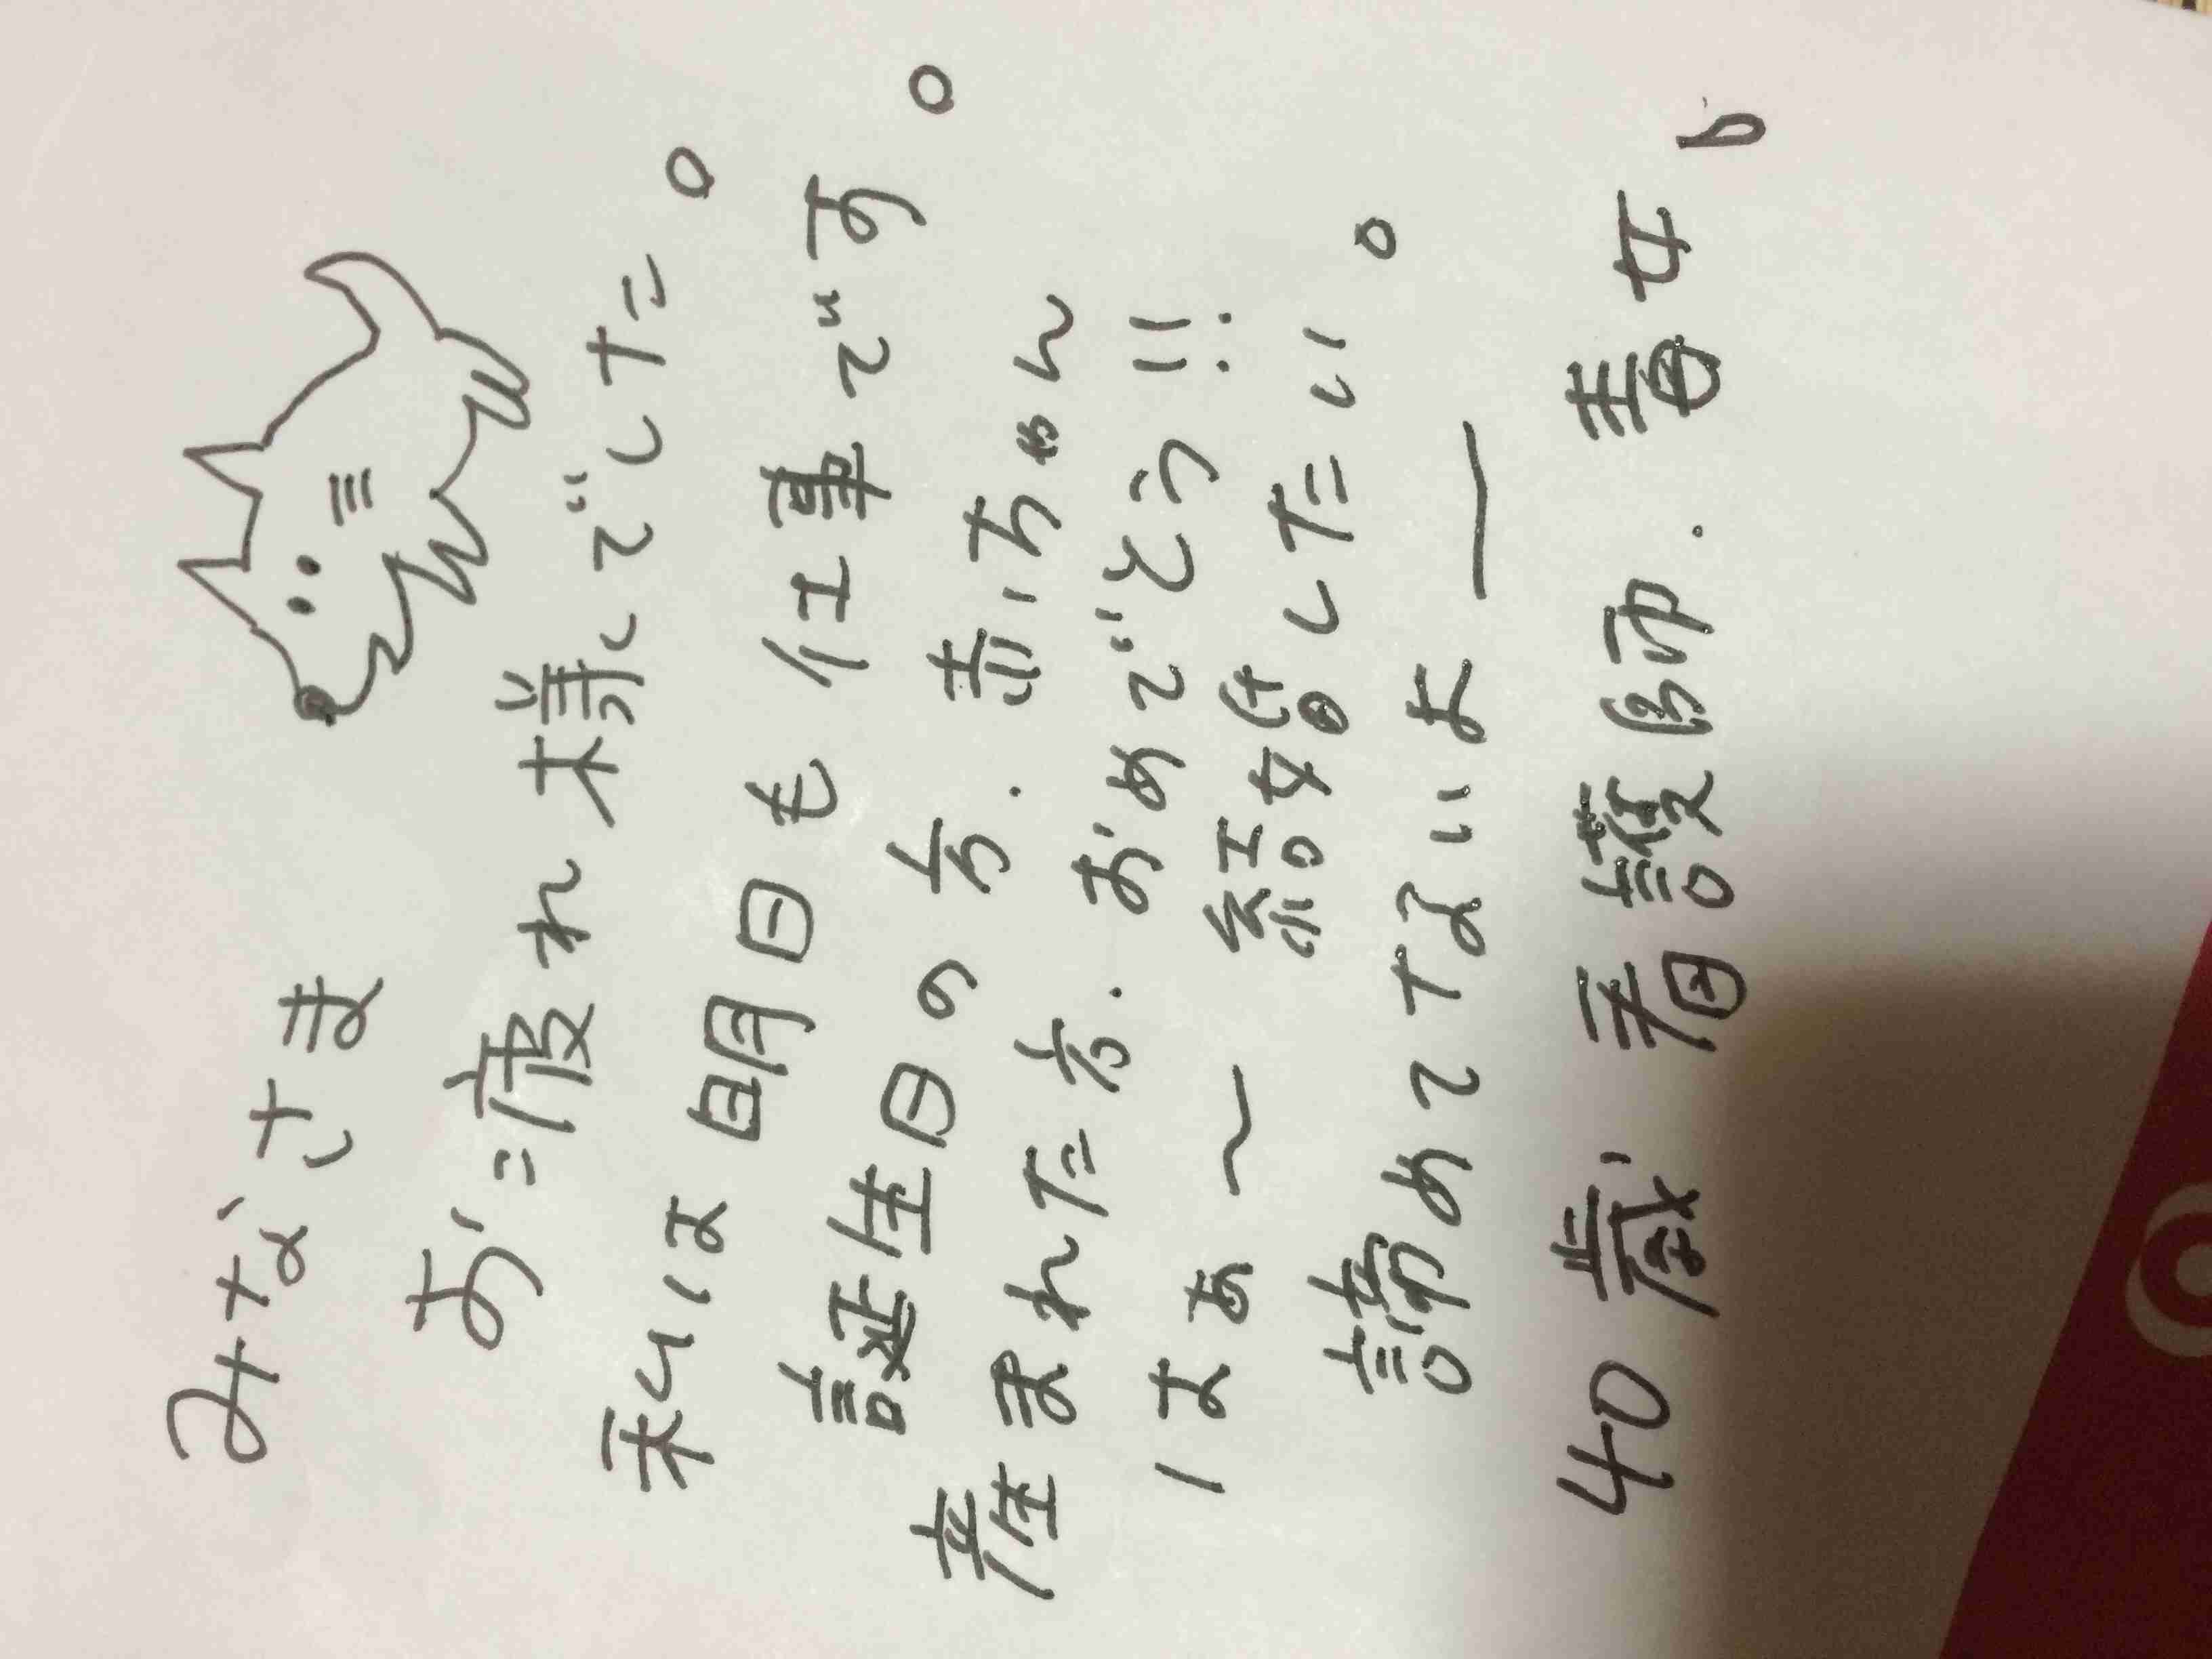 みなさま
お疲れ様でした。
私は明日も仕事です。
誕生日の方.赤ちゃん
産まれた方.おめでとう!!
はぁ〜 結婚したい。
諦めてないよー
40歳 看護師.毒女 b